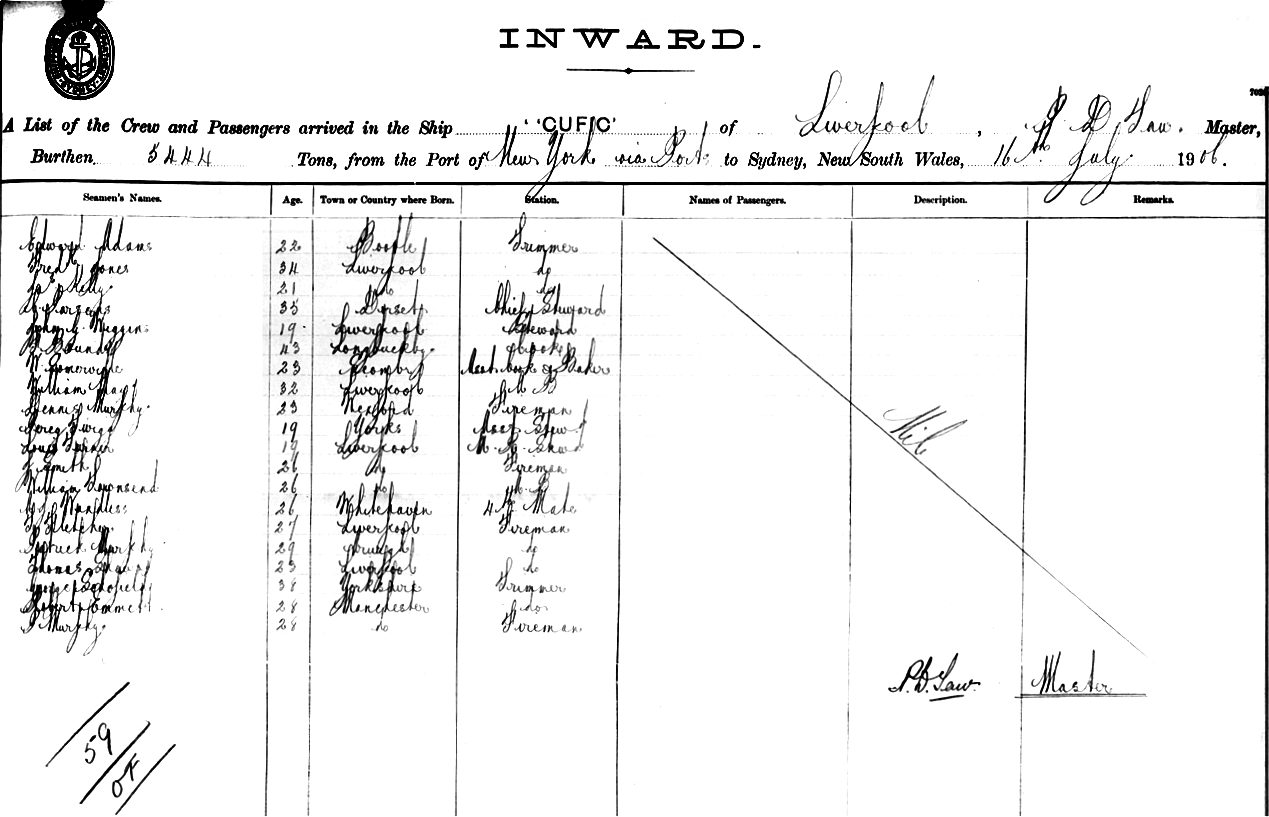 INWARD.
A List of the Crew and Passengers arrived in the Ship "CUFIC" of Liverpool, D Law. Master,
Burthen 5444 Tons, from the Port of New York via Ports to Sydney, New South Wales, 16th July 1906.
Seamen's Names. Age. Town or Country where Born. Station. Names of Passengers. Description. Remarks.
Edward Adams 22 Bootle Trimmer
Fredk Jones 34 Liverpool do
Jas Kelly 21 do do
Parsons 35 Dorset Chief Steward
John Wiggins 19 Liverpool Steward
43 Cook
23 Asst Cook & Baker
William 32 Liverpool A B
Dennis Murphy 23 Fireman
19 Yorks Asst Stewd
Louis Turner 19 Liverpool M. R. Stewd
Smith 26 do Fireman
William Townsend 26 do
26 Whitehaven 4th Mate
Fletcher 27 Liverpool Fireman
Patrick Murphy 29 do
Thomas 23 Liverpool do
George Schofield 38 Yorkshire Trimmer
Robert Emmett 28 Manchester do
Murphy 28 do Fireman
Nil
P. D. Law. Master
59